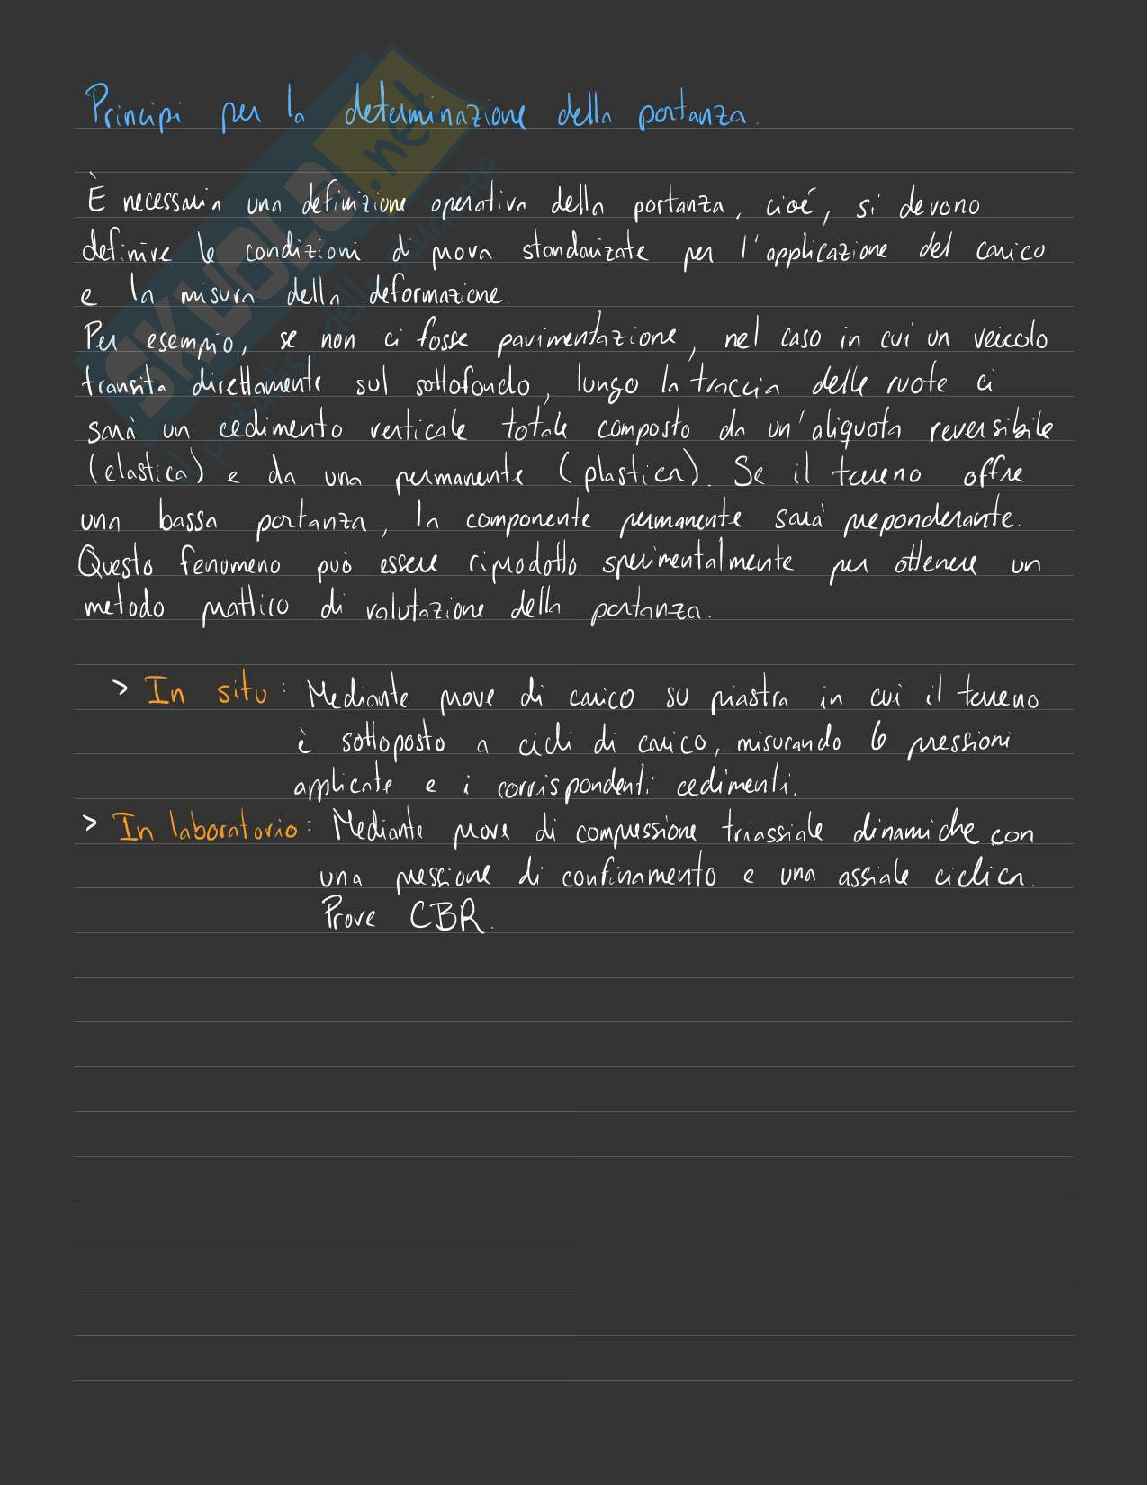 Principi per la determinazione della portanza.
È necessaria una definizione operativa della portanza, cioé, si devono
definire le condizioni di prova standarizzate per l'applicazione del carico
e la misura della deformazione.
Per esempio, se non ci fosse pavimentazione, nel caso in cui un veicolo
transita direttamente sul sottofondo, lungo la traccia delle ruote ci
sarà un cedimento verticale totale composto da un'aliquota reversibile
(elastica) e da una permanente (plastica). Se il terreno offre
una bassa portanza, la componente permanente sarà preponderante.
Questo fenomeno può essere riprodotto sperimentalmente per ottenere un
metodo prattico di valutazione della portanza.
> In situ: Mediante prove di carico su piastra in cui il terreno
è sottoposto a cicli di carico, misurando le pressioni
applicate e i corrispondenti cedimenti.
> In laboratorio: Mediante prove di compressione triassiale dinamiche con
una pressione di confinamento e una assiale ciclica.
Prove CBR.
SKUOLA.net